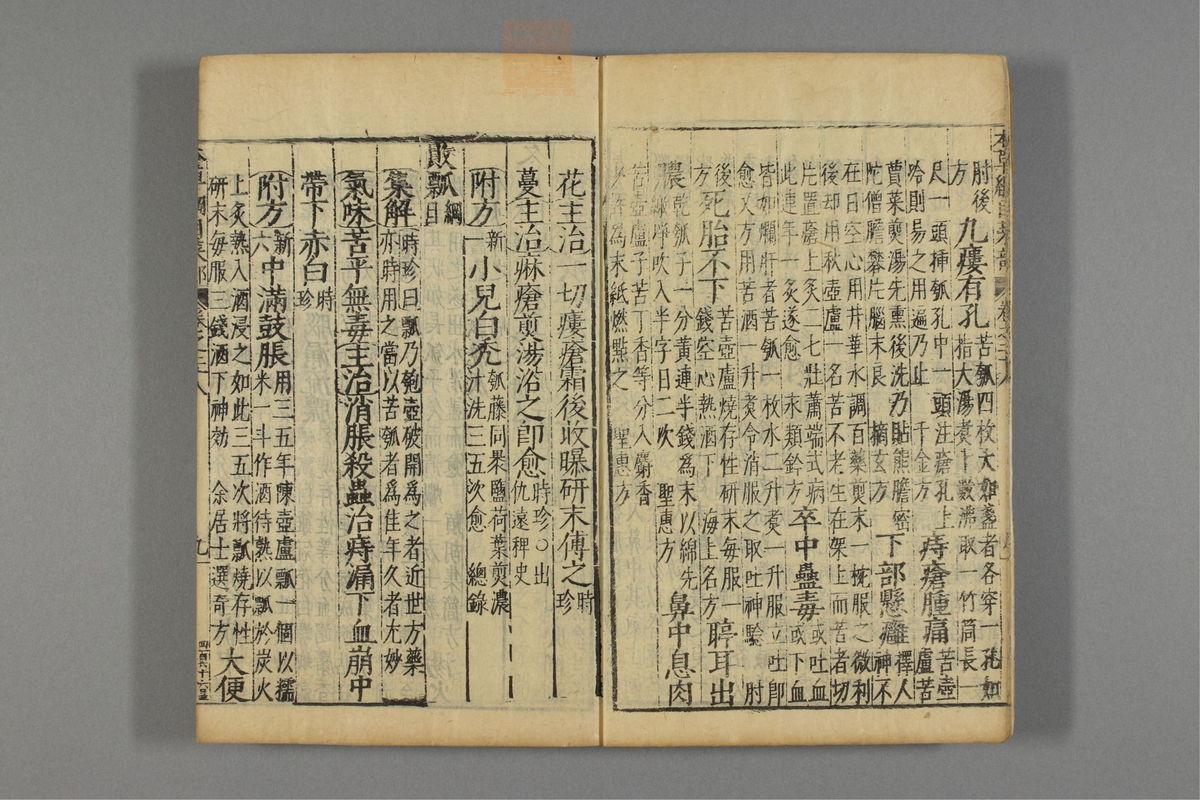 肘後方 九瘻有孔 苦瓠四枚大如盞者各穿一孔如
指大湯煑十數沸取一竹筒長一
尺一頭揷瓠孔中一頭注瘡孔上
冷則易之用遍乃止 千金方 痔瘡腫痛 苦壺盧苦
曹菜煎湯先熏後洗乃貼熊膽密
陀僧膽礬片腦末良 摘玄方 下部懸癰 擇人神不
在日空心用井華水調百藥煎末一椀服之微利
後却用秋壺盧一名苦不老生在架上而苦者切
片置瘡上灸二七壯蕭端式病
此連年一灸遂愈 永類鈐方 卒中蠱毒 或吐血或下血
皆如爛肝者苦瓠一枚水二升煑一升服立吐即
愈又方用苦酒一升煑令消服之取吐神驗 肘
後 死胎不下 苦壺盧燒存性研末每服一
錢空心熱酒下 海上名方 聤耳出
膿 乾瓠子一分黃連半錢爲末以綿先
吹入半字日二次 聖惠方 鼻中息肉
苦壺盧子苦丁香等分入麝香
爲末紙撚點之 聖惠方
花主治一切瘻瘡霜後收曝研末傅之 時珍
蔓主治麻瘡煎湯浴之即愈 時珍○出仇遠稗史
附方 新一 小兒白禿 瓠藤同裹鹽荷葉煎濃汁洗三五次愈 總錄
敗瓢 綱目
集解 時珍曰瓢乃匏壺破開爲之者近世方藥
亦時用之當以苦瓠者爲佳年久者尤妙
氣味苦平無毒主治消脹殺蟲治痔漏下血崩中
帶下赤白 時珍
附方 新六 中滿鼓脹 用三五年陳壺盧瓢一個以糯
米一斗作酒待熟以瓢於炭火
上炙熱入酒浸之如此三五次將瓢燒存性
研末每服三錢酒下神効 余居士選奇方 大便